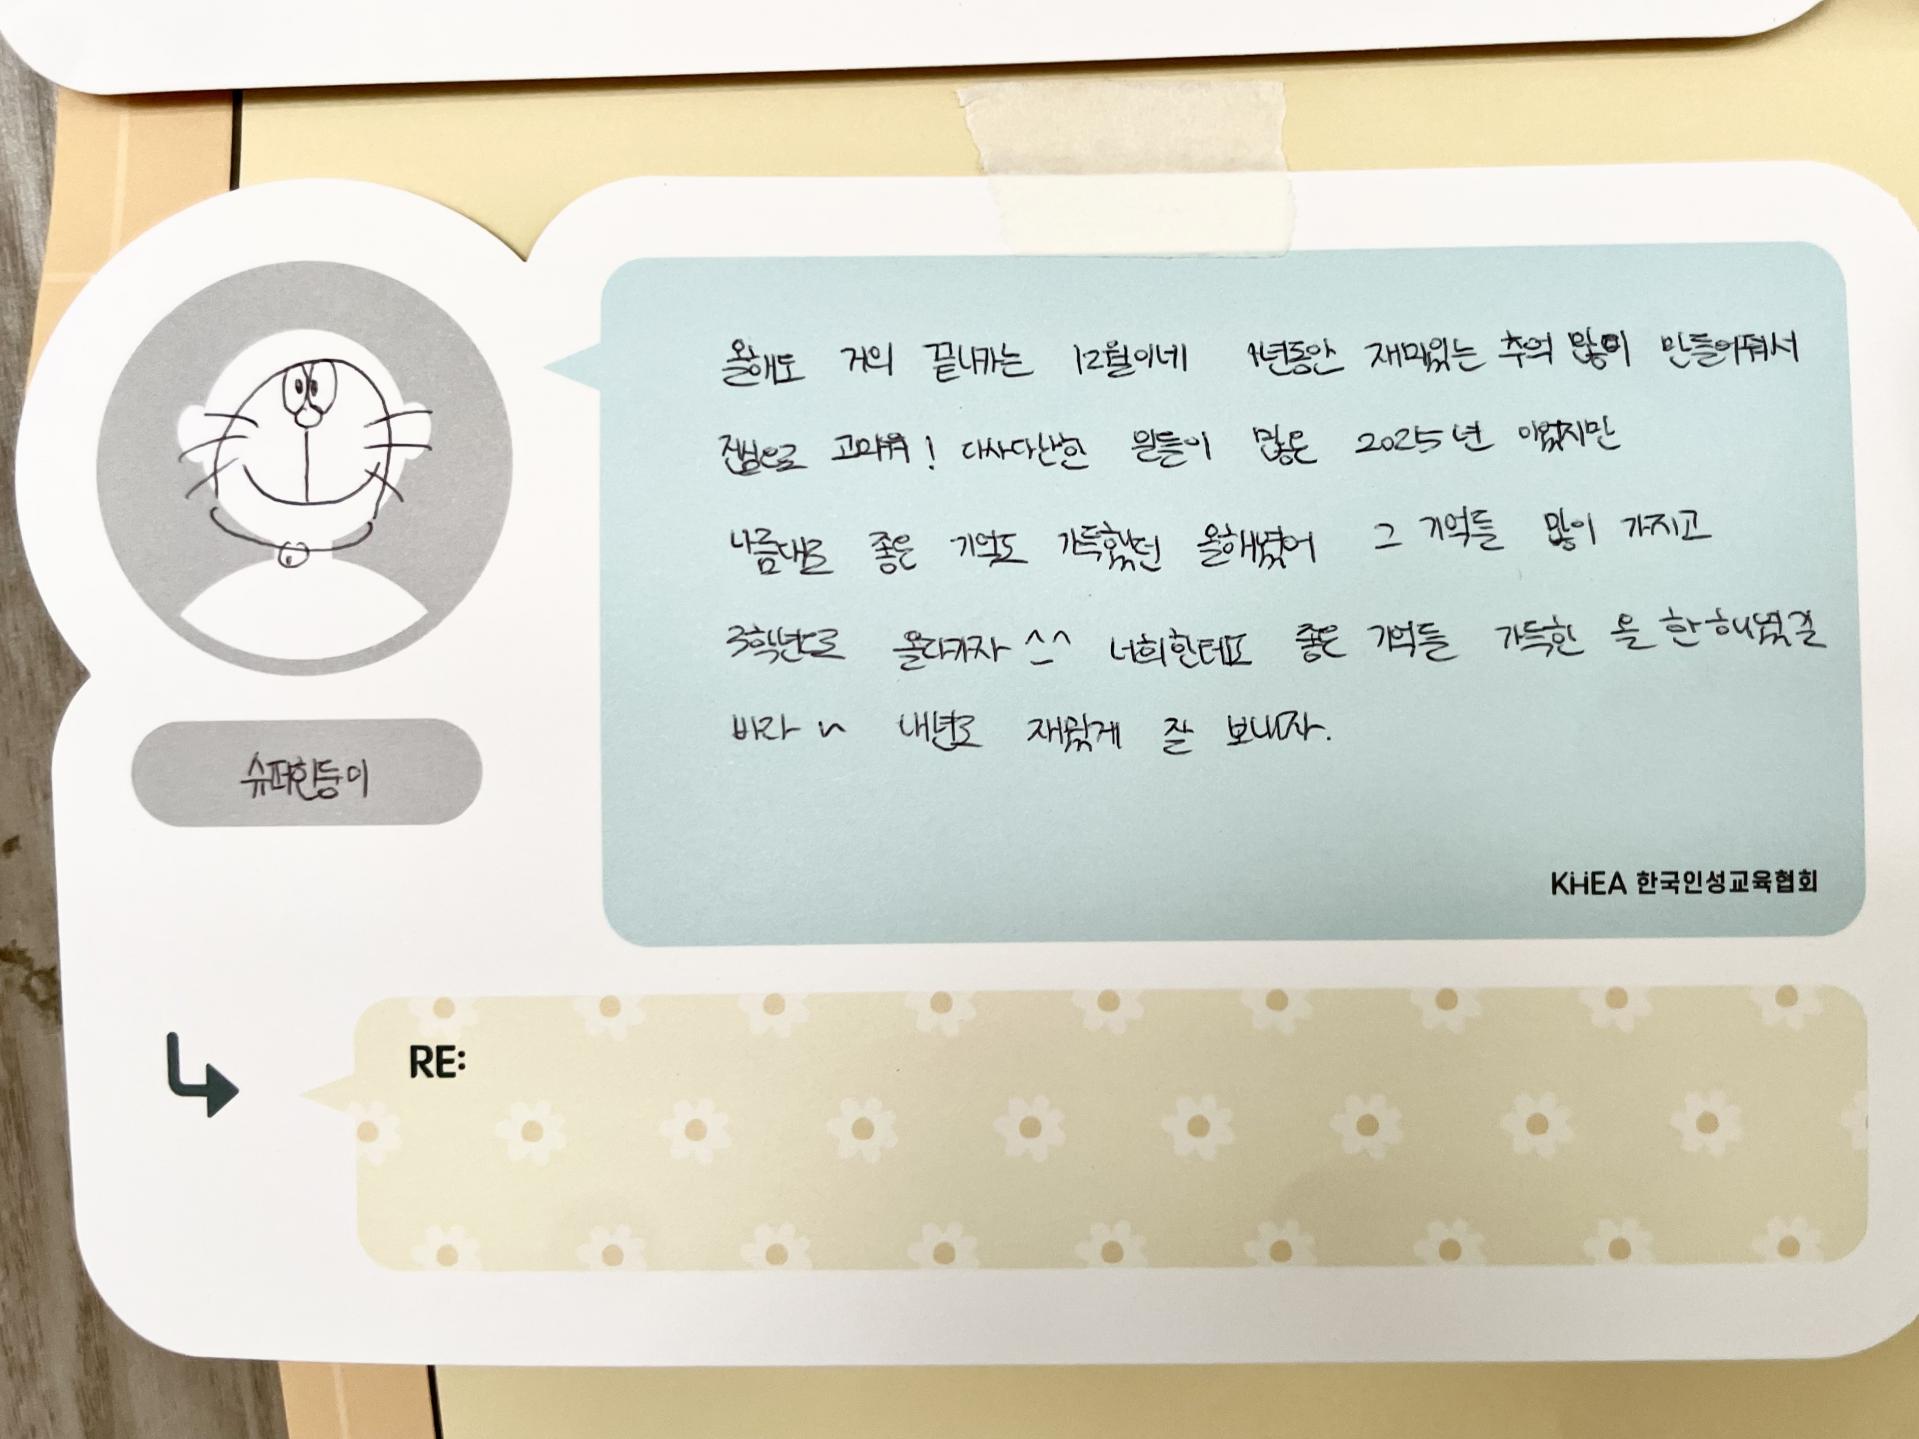 올해도 거의 끝나가는 12월이네 1년동안 재미있는 추억 많이 만들어줘서
진심으로 고마워! 다사다난한 일들이 많은 2025년 이었지만
나름대로 좋은 기억도 가득했던 올해였어 그 기억들 많이 가지고
3학년으로 올라가자 ^_^ 너희한테도 좋은 기억들 가득한 올 한해였길
바라 ~ 내년도 재밌게 잘 보내자.
슈퍼힌둥이
KHEA 한국인성교육협회
RE: